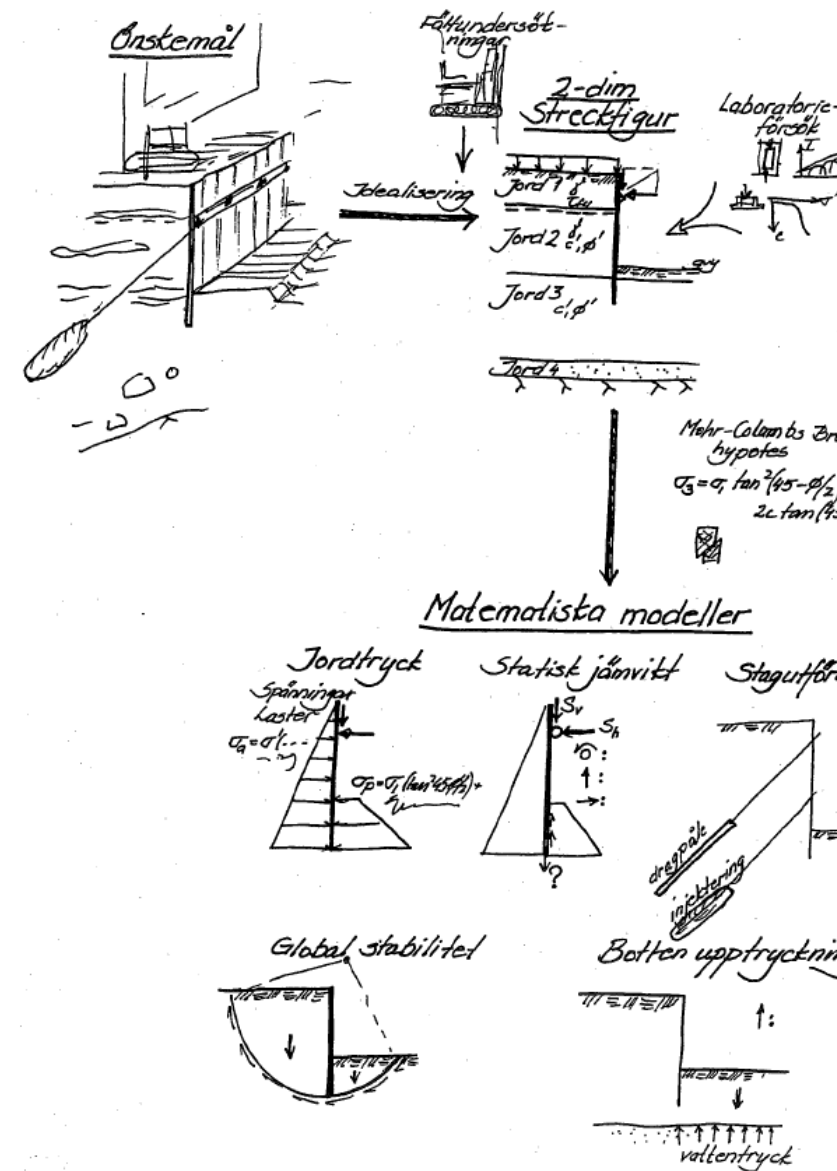 Önskemål
Fältundersök-
ningar
2-dim
Streckfigur
Laboratorie-
försök
Idealisering
Jord 1 γ
Jord 2 c', φ'
Jord 3
c', φ'
Jord 4
Mohr-Colombs
hypotes
σ₃ = σ₁ tan²(45-φ/2)
2c tan(45
Matematiska modeller
Jordtryck
Statisk jämvikt
Spänningar
Laster
Sᵥ
Sₕ
?
dragpåle
injektering
Global stabilitet
Botten upptryckning
vattentryck